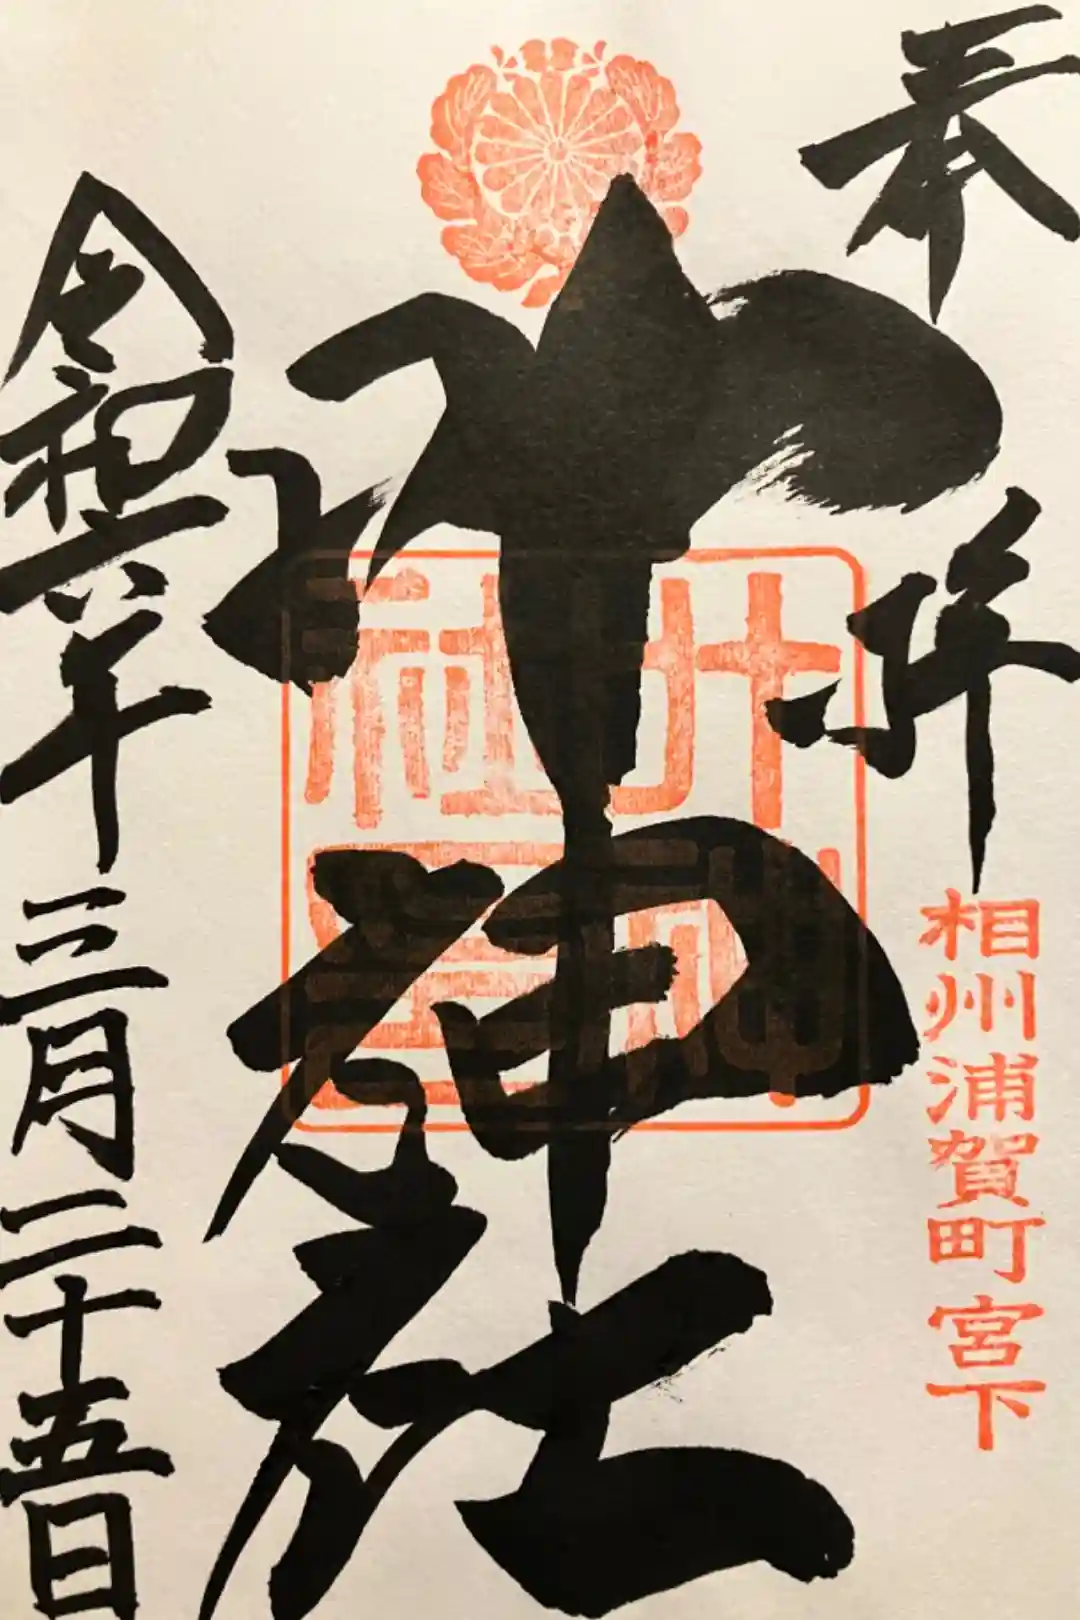 奉拝
相州浦賀町宮下
叶神社
叶神
社印
令和六年三月二十五日